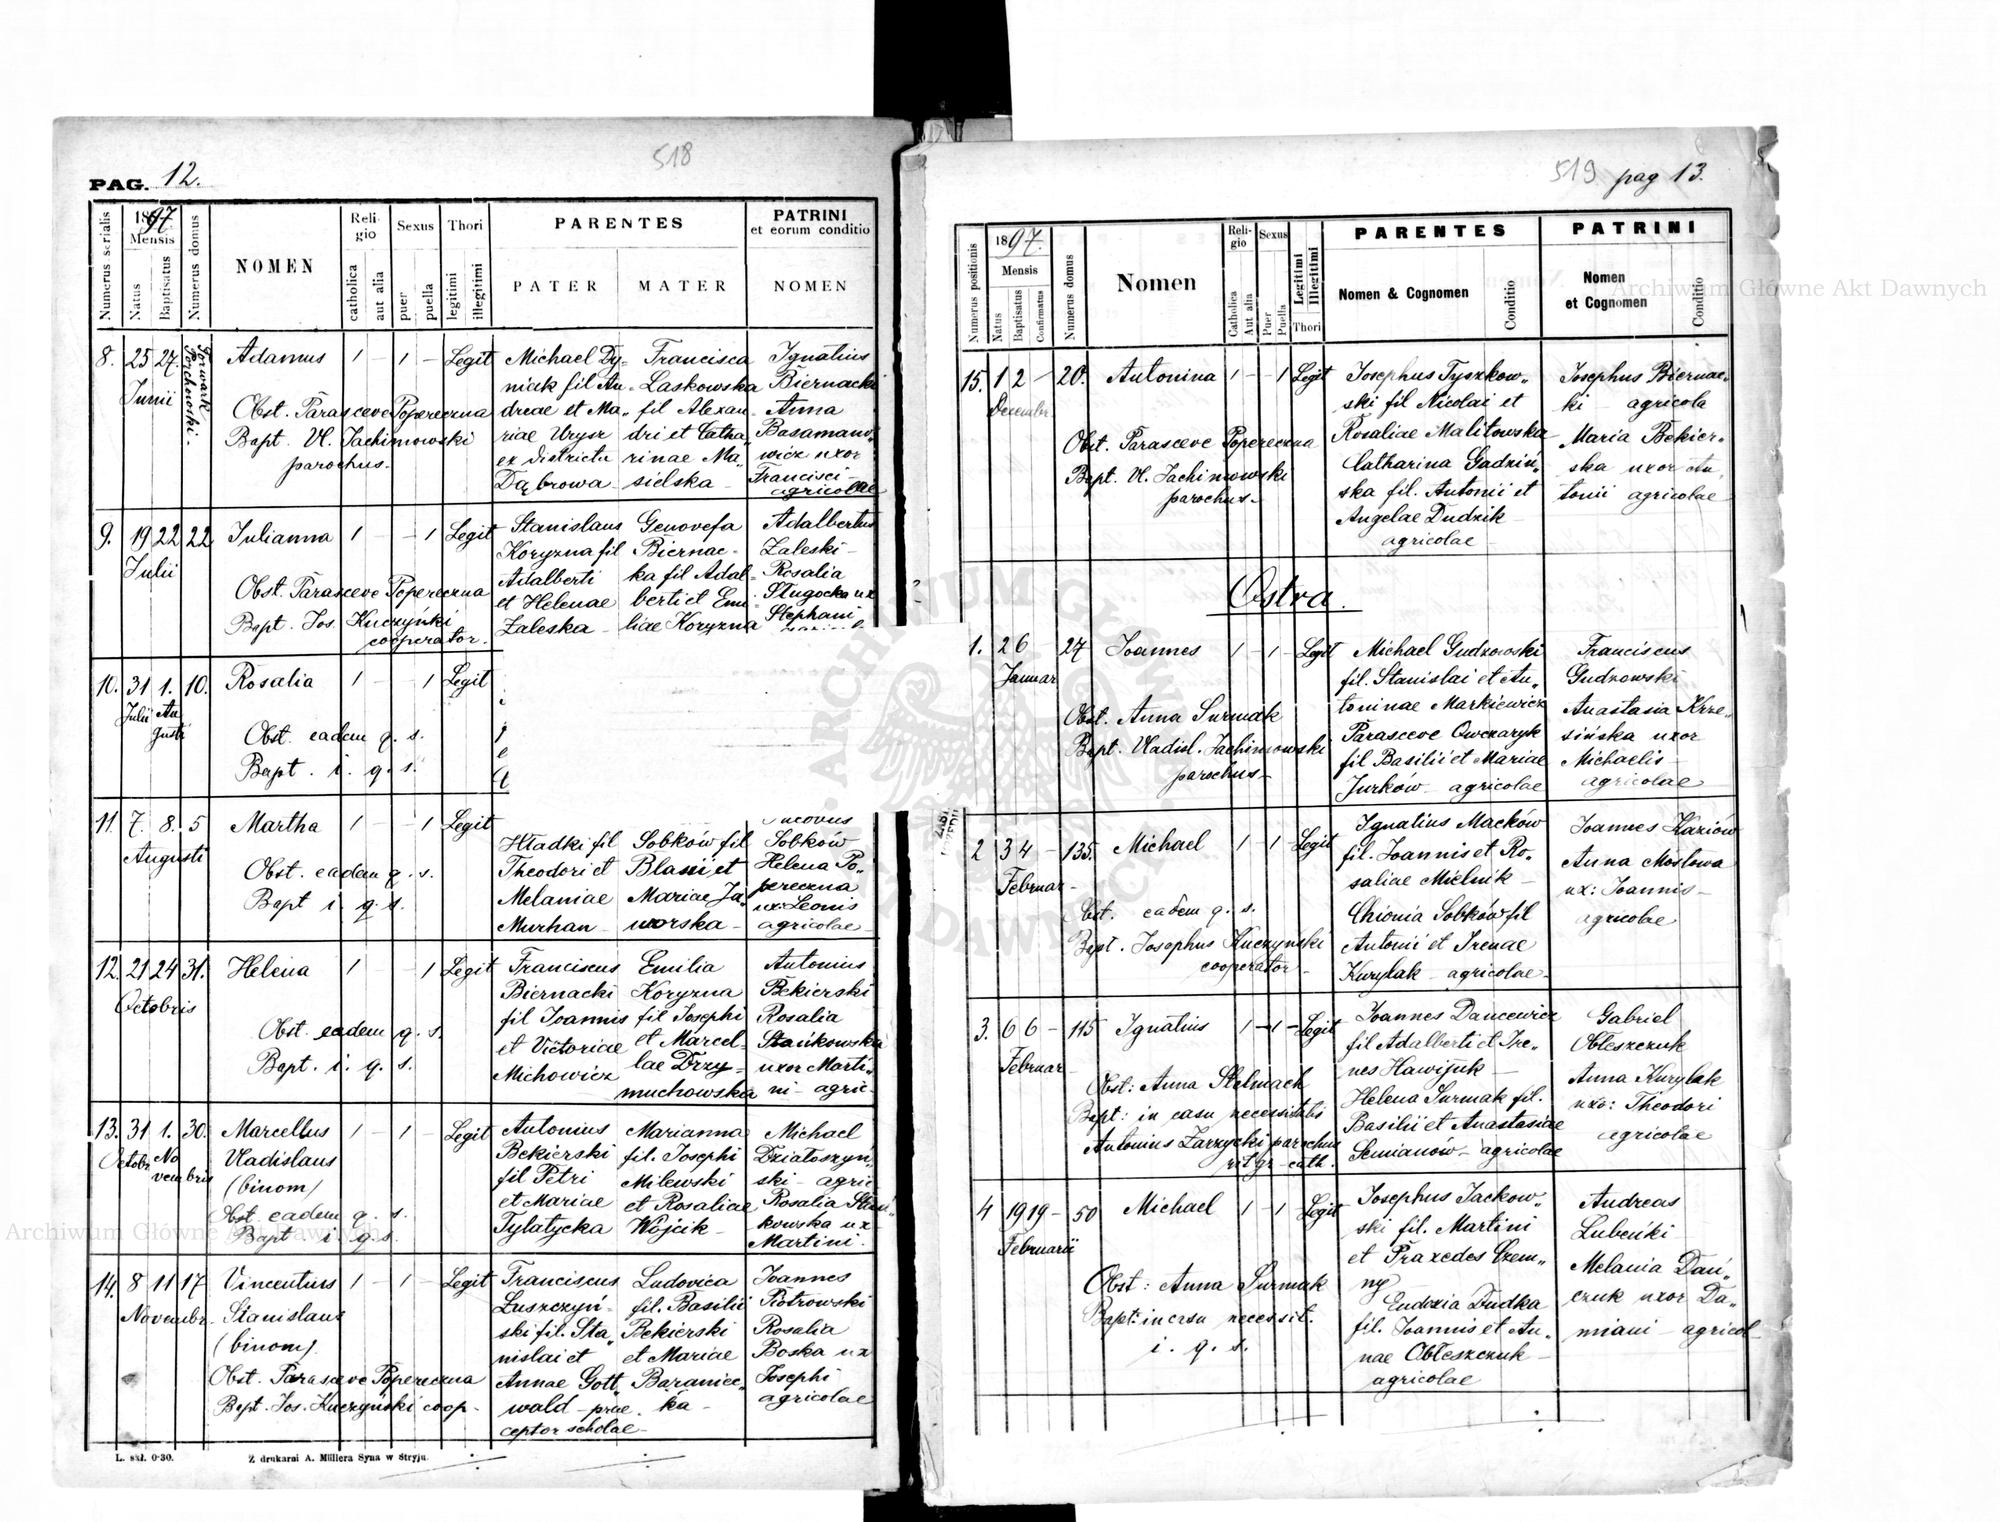 518
PAG. 12.
Numerus serialis
1897
Mensis
Natus
Baptisatus
Numerus domus
NOMEN
Religio
catholica
aut alia
Sexus
puer
puella
Thori
legitimi
illegitimi
PARENTES
PATER
MATER
PATRINI
et eorum conditio
NOMEN
8. 25 27. Adamus 1 – 1 – Legit
Junii
Forwark
Porchowski.
Obst. Parasceve Popereczna
Bapt. Vl. Jachimowski
parochus.
Michael Dy-
niak fil An-
dreae et Ma-
riae Urysz
ex districtu
Dąbrowa
Francisca
Laskowska
fil Alexan-
dri et Catha-
rinae Ma-
sielska
Ignatius
Biernacki
Anna
Basamano-
wicz uxor
Francisci
agricolae
9. 19 22 22 Julianna 1 – – 1 Legit
Julii
Obst. Parasceve Popereczna
Bapt. Jos. Kuczyński
cooperator.
Stanislaus
Koryzna fil
Adalberti
et Helenae
Zaleska
Genovefa
Biernac-
ka fil Adal-
berti et Emi-
liae Koryzna
Adalbertus
Zaleski
Rosalia
Sługocka ux
Stephani
10. 31 1. 10. Rosalia 1 – – 1 Legit
Julii Au
gusti
Obst. eadem q. s.
Bapt. i. q. s.
11. 7. 8. 5 Martha 1 – – 1 Legit
Augusti
Obst. eadem q. s.
Bapt i. q. s.
Hładki fil
Theodori et
Melaniae
Murhan
Sobków fil
Blasii et
Mariae Ja-
worska
Jacobus
Sobków
Helena Po-
pereczna
ux: Leonis
agricolae
12. 21 24 31. Helena 1 – – 1 Legit
Octobris
Obst. eadem q. s.
Bapt. i. q. s.
Franciscus
Biernacki
fil Joannis
et Victoriae
Michowicz
Emilia
Koryzna
fil Josephi
et Marcel-
lae Drzy-
muchowska
Antonius
Bekierski
Rosalia
Stańkowska
uxor Marti-
ni – agric
13. 31 1. 30. Marcellus 1 – 1 – Legit
Octobr. No
vembris
Vladislaus
(binom)
Obst. eadem q. s.
Bapt i. q. s.
Antonius
Bekierski
fil Petri
et Mariae
Tylatycka
Marianna
fil. Josephi
Milewski
et Rosaliae
Wójcik
Michael
Działoszyń-
ski – agric
Rosalia Stań-
kowska ux
Martini.
14. 8 11 17 Vincentius 1 – 1 – Legit
Novembr.
Stanislaus
(binom)
Obst. Parasceve Popereczna
Bapt. Jos. Kuczyński coop.
Franciscus
Łuszczyń-
ski fil. Sta-
nislai et
Annae Gott-
wald – prae-
ceptor scholae
Ludovica
fil. Basilii
Bekierski
et Mariae
Baraniec-
ka
Joannes
Piotrowski
Rosalia
Boska ux
Josephi
agricolae
L. skł. 0-30.
Z drukarni A. Müllera Syna w Stryju.
519 pag 13.
Numerus positionis
1897.
Mensis
Natus
Baptisatus
Confirmatus
Numerus domus
Nomen
Religio
Catholica
Aut alia
Sexus
Puer
Puella
Legitimi
Illegitimi
Thori
PARENTES
Nomen & Cognomen
Conditio
PATRINI
Nomen
et Cognomen
Conditio
15. 1 2 – 20. Antonina 1 – – 1 Legit
Decembr.
Obst. Parasceve Popereczna
Bapt. Vl. Jachimowski
parochus.
Josephus Tyszkow-
ski fil Nicolai et
Rosaliae Malitowska
Catharina Gadziń-
ska fil. Antonii et
Angelae Dudzik
agricolae
Josephus Biernac-
ki – agricola
Maria Bekier-
ska uxor An-
tonii agricolae
Ostra.
1. 2 6 27 Joannes 1 – 1 – Legit
Januar
Obst. Anna Surmak
Bapt. Vladisl. Jachimowski
parochus
Michael Gudzowski
fil. Stanislai et An-
toninae Markiewicz
Parasceve Owczaryk
fil Basilii et Mariae
Jurków – agricolae
Franciscus
Gudzowski
Anastasia Krze-
sińska uxor
Michaelis
agricolae
2 3 4 – 135. Michael 1 – 1 – Legit
Februar
Obst. eadem q. s.
Bapt. Josephus Kuczyński
cooperator
Ignatius Maćków
fil. Joannis et Ro-
saliae Mielnik
Chionia Sobków fil
Antonii et Irenae
Kurylak – agricolae
Joannes Kaziów
Anna Mosłowa
ux: Joannis
agricolae
3. 6 6 – 115 Ignatius 1 – 1 – Legit
Februar
Obst: Anna Stelmach
Bapt: in casu necessitatis
Antonius Zarzycki parochus
rit gr-cath.
Joannes Dancewicz
fil Adalberti et Ire-
nes Hawijuk
Helena Surmak fil.
Basilii et Anastasiae
Semianów – agricolae
Gabriel
Obleszczuk
Anna Kurylak
uxo: Theodori
agricolae
4 19 19 – 50 Michael 1 – 1 Legit
Februarii
Obst: Anna Surmak
Bapt: in casu necessit.
i. q. s.
Josephus Jackow-
ski fil. Martini
et Praxedes Czem-
ny
Eudoxia Dudka
fil. Joannis et An-
nae Obłeszczuk
agricolae
Andreas
Lubeński
Melania Dań-
czuk uxor Da-
miani – agricol
Archiwum Główne Akt Dawnych
Archiwum Główne Akt Dawnych
ARCHIWUM GŁÓWNE AKT DAWNYCH